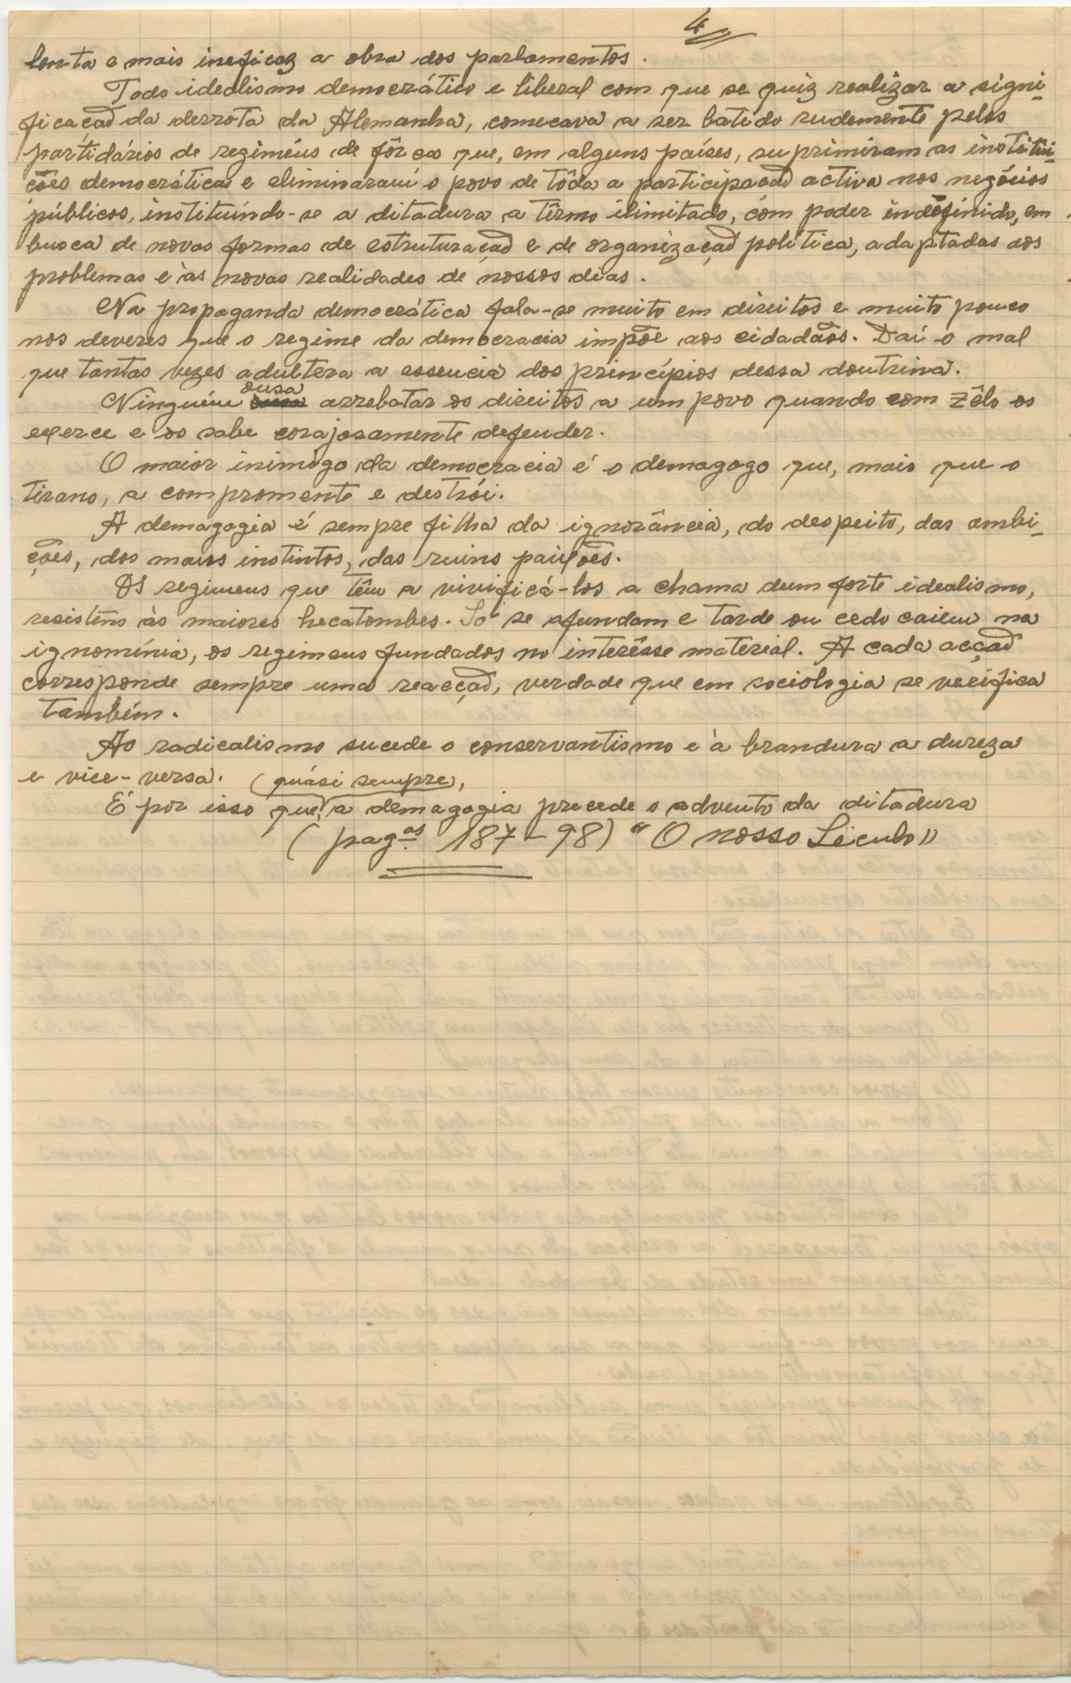 4
lenta e mais ineficaz a obra dos parlamentos.
Todo idealismo democrático e liberal com que se quiz realizar a signi-
ficação da derrota da Alemanha, começava a ser batido rudemente pelos
partidários de regimens de fôrça que, em alguns países, suprimiram as institui-
ções democráticas e eliminaram o povo de tôda a participação activa nos negócios
públicos, instituíndo-se a ditadura a têrmo ilimitado, com poder indefinido, em
busca de novas formas de estruturação e de organização política, adaptadas aos
problemas e às novas realidades de nossos dias.
Na propaganda democrática fala-se muito em direitos e muito pouco
nos deveres que o regime da democracia impõe aos cidadãos. Daí o mal
que tantas vezes adultera a essencia dos princípios dessa doutrina.
ousa
Ninguém arrebatar os direitos a um povo quando com zêlo os
exerce e os sabe corajosamente defender.
O maior inimigo da democracia é o demagogo que, mais que o
tirano, a compromente e destrói.
A demagogia é sempre filha da ignorância, do despeito, das ambi-
ções, dos maus instintos, das ruins paixões.
Os regimens que têm a vivificá-los a chama dum forte idealismo,
resistem às maiores hecatombes. Só se afundam e tarde ou cedo caiem na
ignomínia, os regimens fundados no interêsse material. A cada acção
corresponde sempre uma reacção, verdade que em sociologia se verifica
também.
Ao radicalismo sucede o conservantismo e à brandura a dureza
e vice-versa. (quási sempre,
É por isso que, a demagogia precede o advento da ditadura
(pag.as 187-98) "O nosso Século"